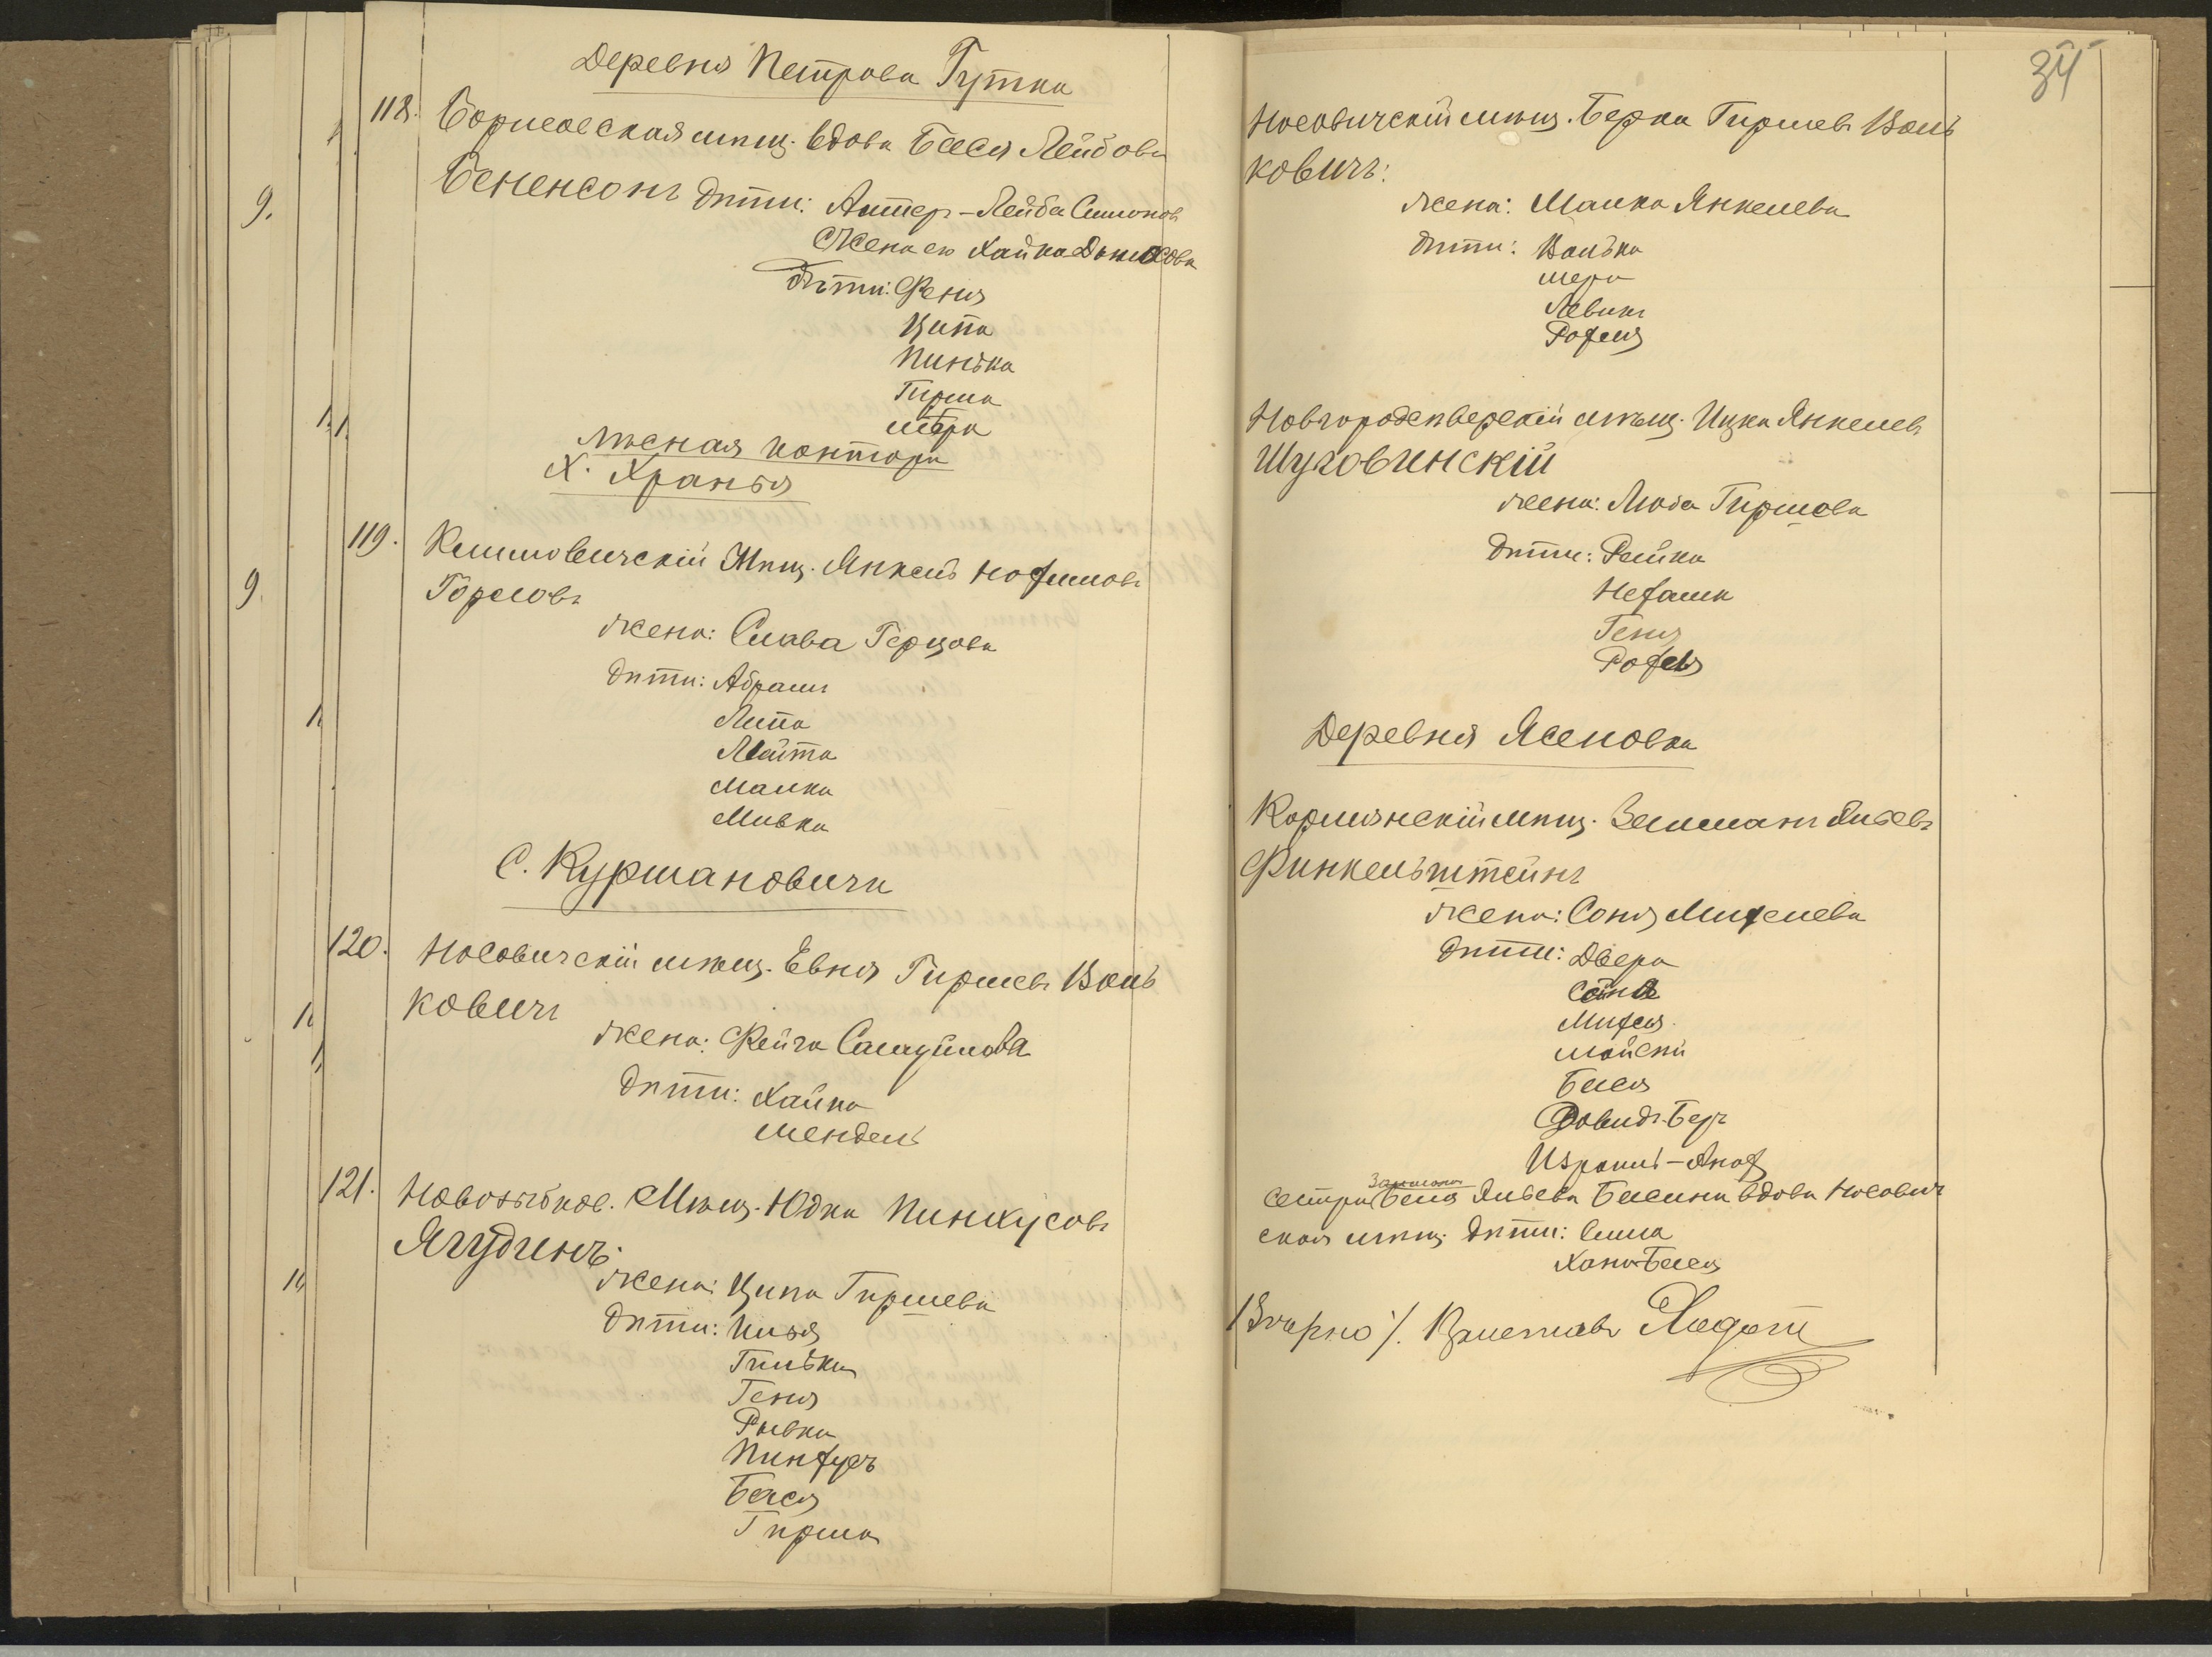 Деревня Петрова Гутка
118. Борисовская мѣщ. вдова Бася Лейбова
Бененсонъ дѣти: Алтер-Лейба Симонов
Жена его Хайка
Дѣти: Феня
Ципа
Пинька
Гирша
Мера
9.
Лѣсная контора
Х. Хранья
119. Климовичскій Мѣщ. Янкель Нохимовъ
Горловъ
9
жена: Слава Герцова
дѣти: Абрамъ
Липа
Малка
Мивка
С. Куршановичи
120. Носовичскій мѣщ. Евня Гиршевъ Воль
ковичъ
жена: Фейга Самуилова
дѣти: Хайка
Мендель
121. Новозыбков. Мѣщ. Юдка Пинхусовъ
Ягудинъ.
жена: Ципа Гиршева
дѣти:
Гилька
Геня
Рывка
Пинхусъ
Бася
Гирша
34
Носовичскій мѣщ. Берка Гиршевъ Воль
ковичъ:
жена: Малка Янкелева
дѣти: Волька
Мера
Левикъ
Рохля
Новгородсѣверскій мѣщ. Ицка Янкелевъ
Шуховинскій
жена: Люба Гиршова
дѣти: Рейка
Нехама
Геня
Рохля
Деревня Ясеновка
Кормянскій мѣщ. Залманъ Янкевъ
Финкельштейнъ
жена: Соня Михелева
дѣти: Двера
Соня
Михля
Бася
Довидъ-Беръ
Израиль-Якоф
Залмана
сестра Бася вдова Носович
ская мѣщ. дѣти: Сима
Хана-Бася
/Вѣрно/.